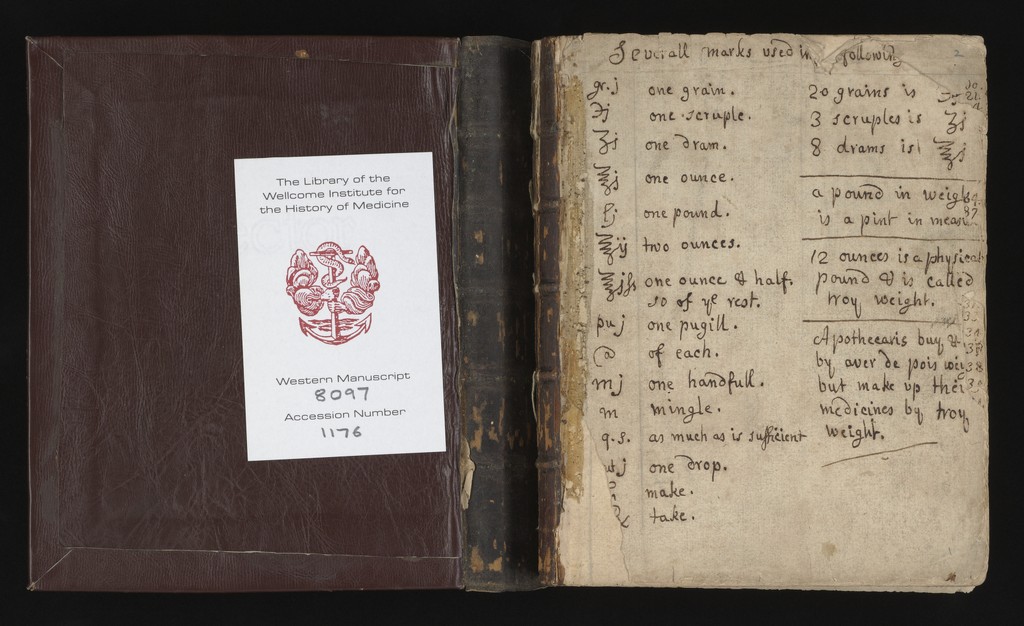 The Library of the
Wellcome Institute for
the History of Medicine
Western Manuscript
8097
Accession Number
1176
Severall marks used in following
gr.j one grain.
℈j one scruple.
ʒj one dram.
℥j one ounce.
℔j one pound.
℥ij two ounces.
℥jſs one ounce & half.
so of yͤ rest.
pu j one pugill.
@ of each.
m j one handfull.
m mingle.
q.s. as much as is sufficient
ut j one drop.
make.
℞ take.
20 grains is
3 scruples is ʒj
8 drams is ℥j
a pound in weigh
is a pint in measu
12 ounces is a physical
pound & is called
troy weight.
Apothecaris buy &
by aver de pois wei
but make up thei
medicines by troy
weight.